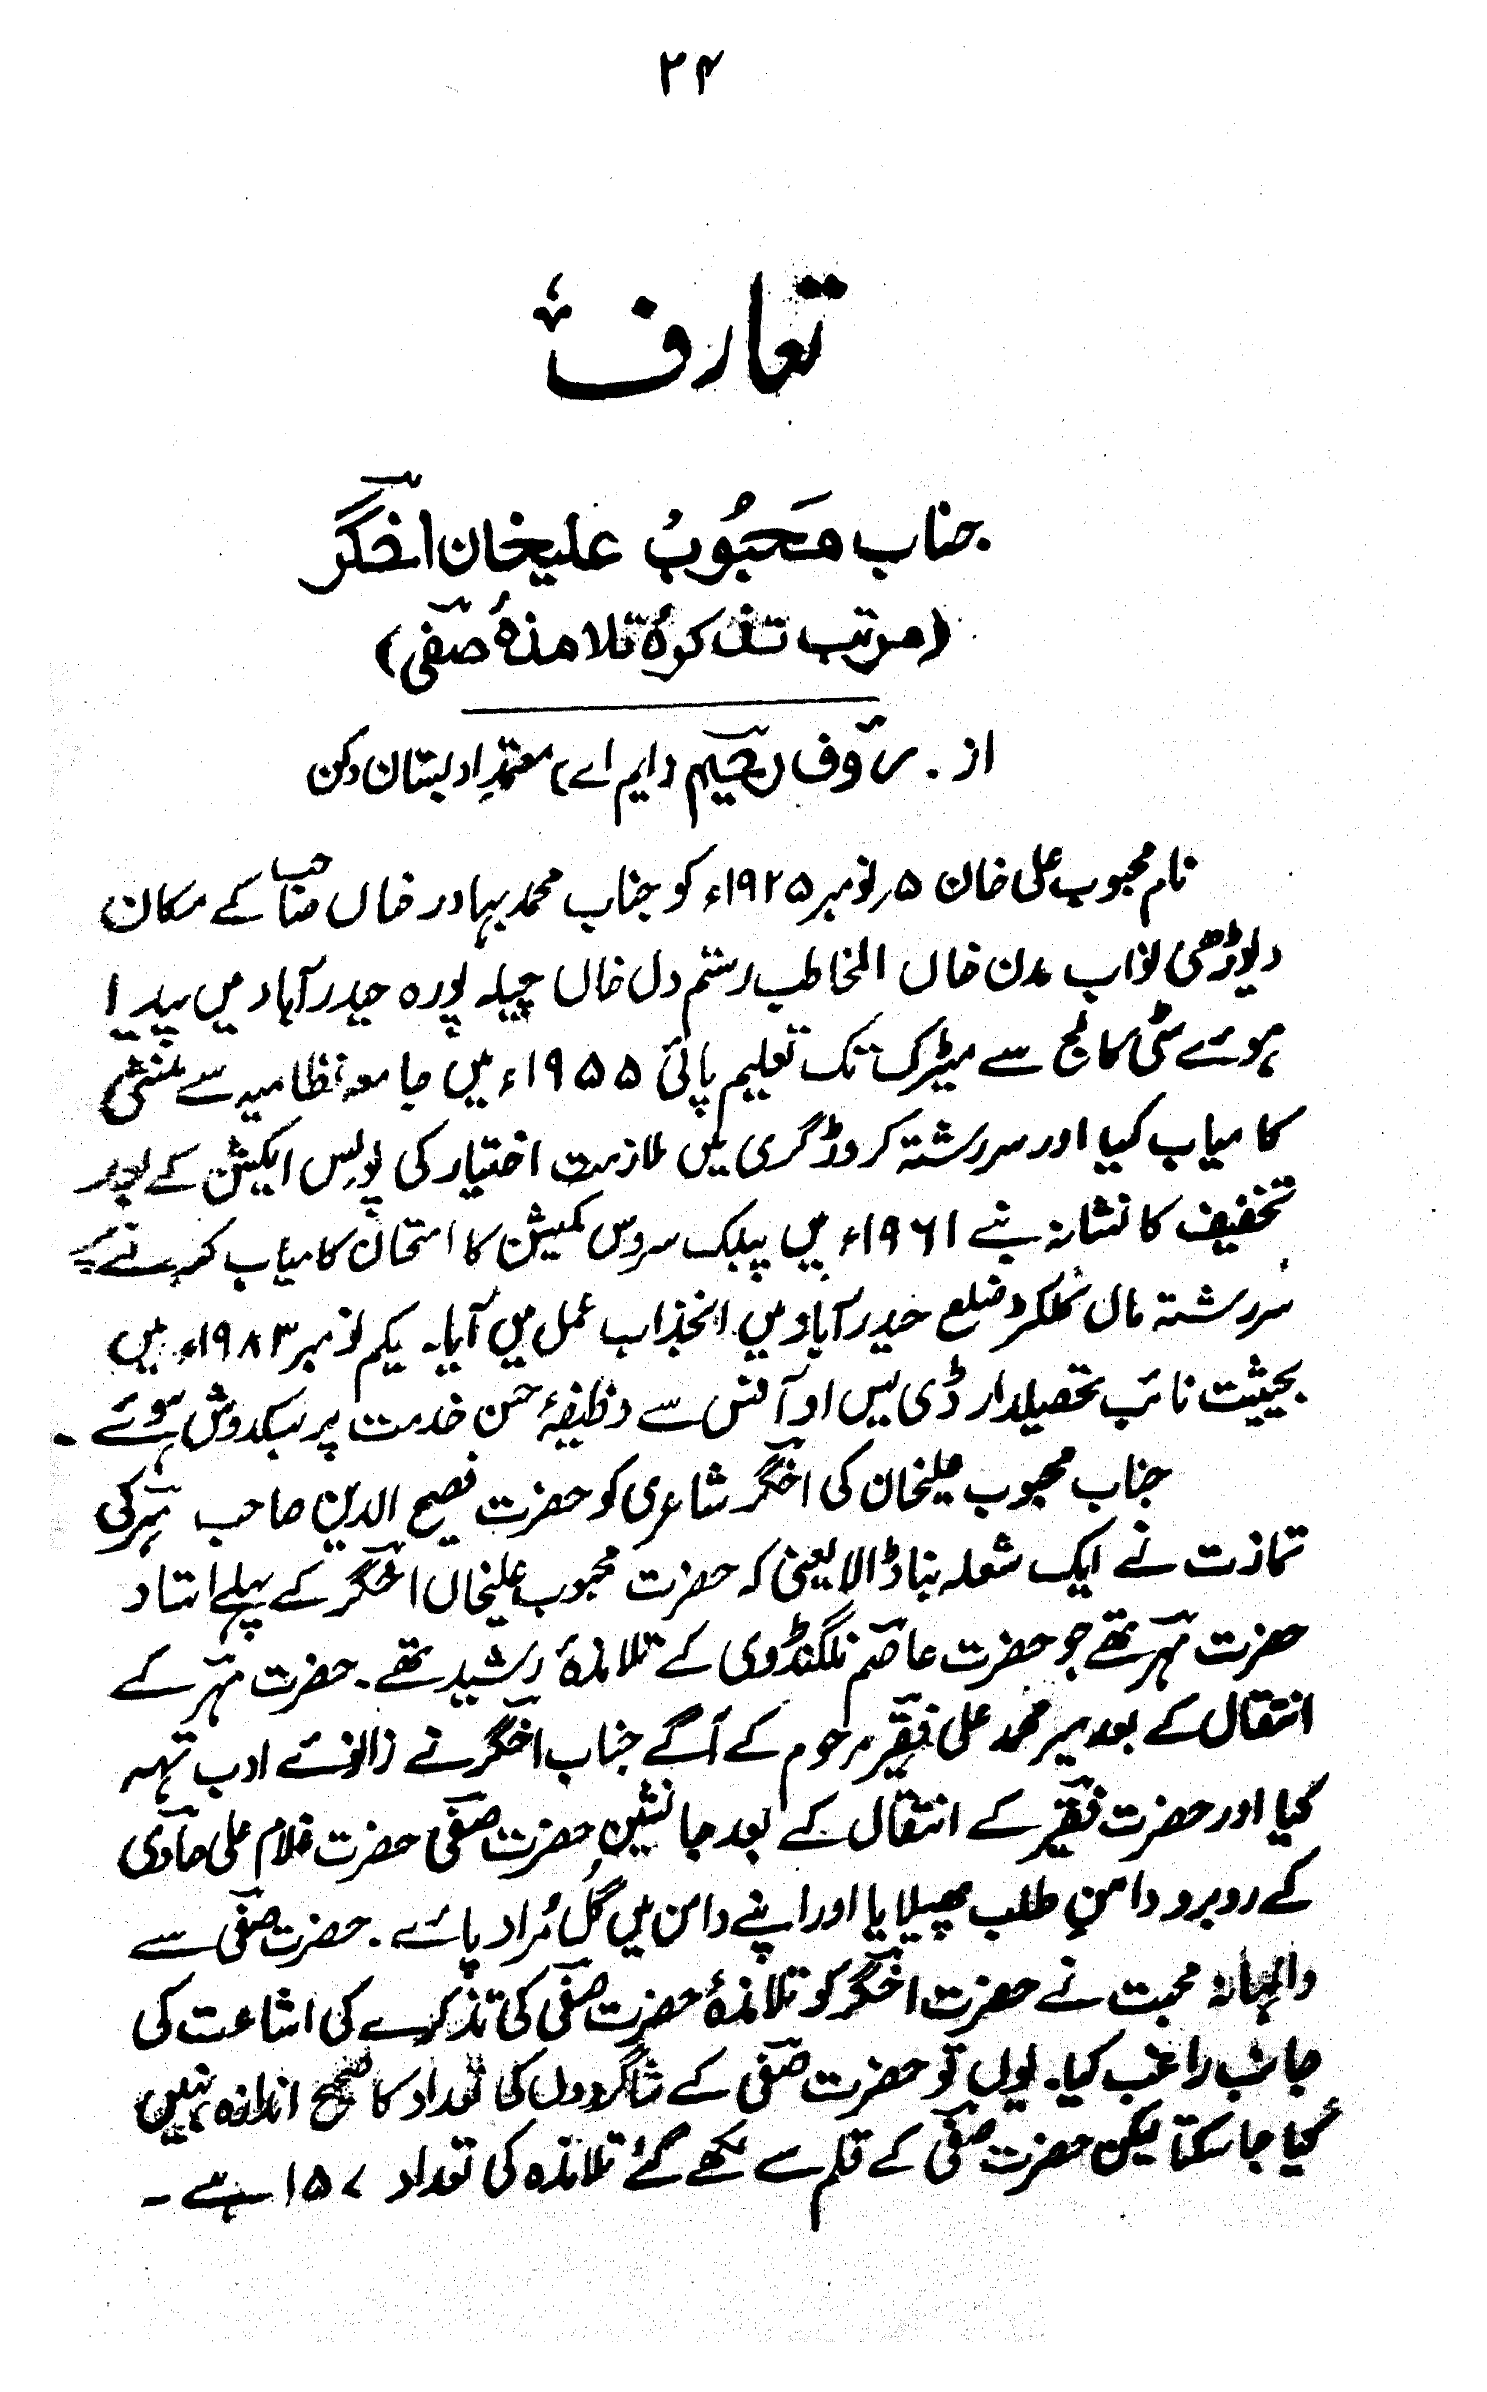 ۲۴
تعارف
جناب محبوب علیخان اخگر
(مرتب تذکرۂ تلامذۂ صفی)
از . رؤف رحیم (ایم اے) معتمد ادبستان دکن
نام محبوب علی خان ۵؍نومبر ۱۹۲۵ء کو جناب محمد بہادر خاں صاحب کے مکان
دیوڑھی نواب مدن خاں المخاطب رستم دل خاں چیلہ پورہ حیدرآباد میں پیدا
ہوئے سٹی کالج سے میٹرک تک تعلیم پائی ۱۹۵۵ء میں جامعہ نظامیہ سے منشی
کامیاب کیا اور سررشتہ کروڈگری میں ملازمت اختیار کی پولس ایکشن کے بعد
تخفیف کا نشانہ بنے ۱۹۶۱ء میں پبلک سروس کمیشن کا امتحان کامیاب کرنے پر
سررشتہ مال کلکٹر ضلع حیدرآباد میں انجذاب عمل میں آیا۔ یکم نومبر ۱۹۸۳ء میں
بحیثیت نائب تحصیلدار ڈی یس او آفس سے وظیفۂ حسن خدمت پر سبکدوش ہوئے ۔
جناب محبوب علیخان کی اخگر شاعری کو حضرت فصیح الدین صاحب مہر کی
تمازت نے ایک شعلہ بنا ڈالا یعنی کہ حضرت محبوب علیخاں اخگر کے پہلے استاد
حضرت مہر تھے جو حضرت عاصم نلگنڈوی کے تلامذۂ رشید تھے۔ حضرت مہر کے
انتقال کے بعد میر محمد علی فقیر مرحوم کے آگے جناب اخگر نے زانوئے ادب تہہ
کیا اور حضرت فقیر کے انتقال کے بعد جانشین حضرت صفی حضرت غلام علی حاوی
کے روبرو دامنِ طلب پھیلایا اور اپنے دامن میں گُل مُراد پائے ۔ حضرت صفی سے
والہانہ محبت نے حضرت اخگر کو تلامذۂ حضرت صفی کی تذکرے کی اشاعت کی
جانب راغب کیا۔ یوں تو حضرت صفی کے شاگردوں کی تعداد کا صحیح اندازہ نہیں
کیا جاسکتا لیکن حضرت صفی کے قلم سے لکھے گئے تلامذہ کی تعداد ۱۵۷ ہے ۔